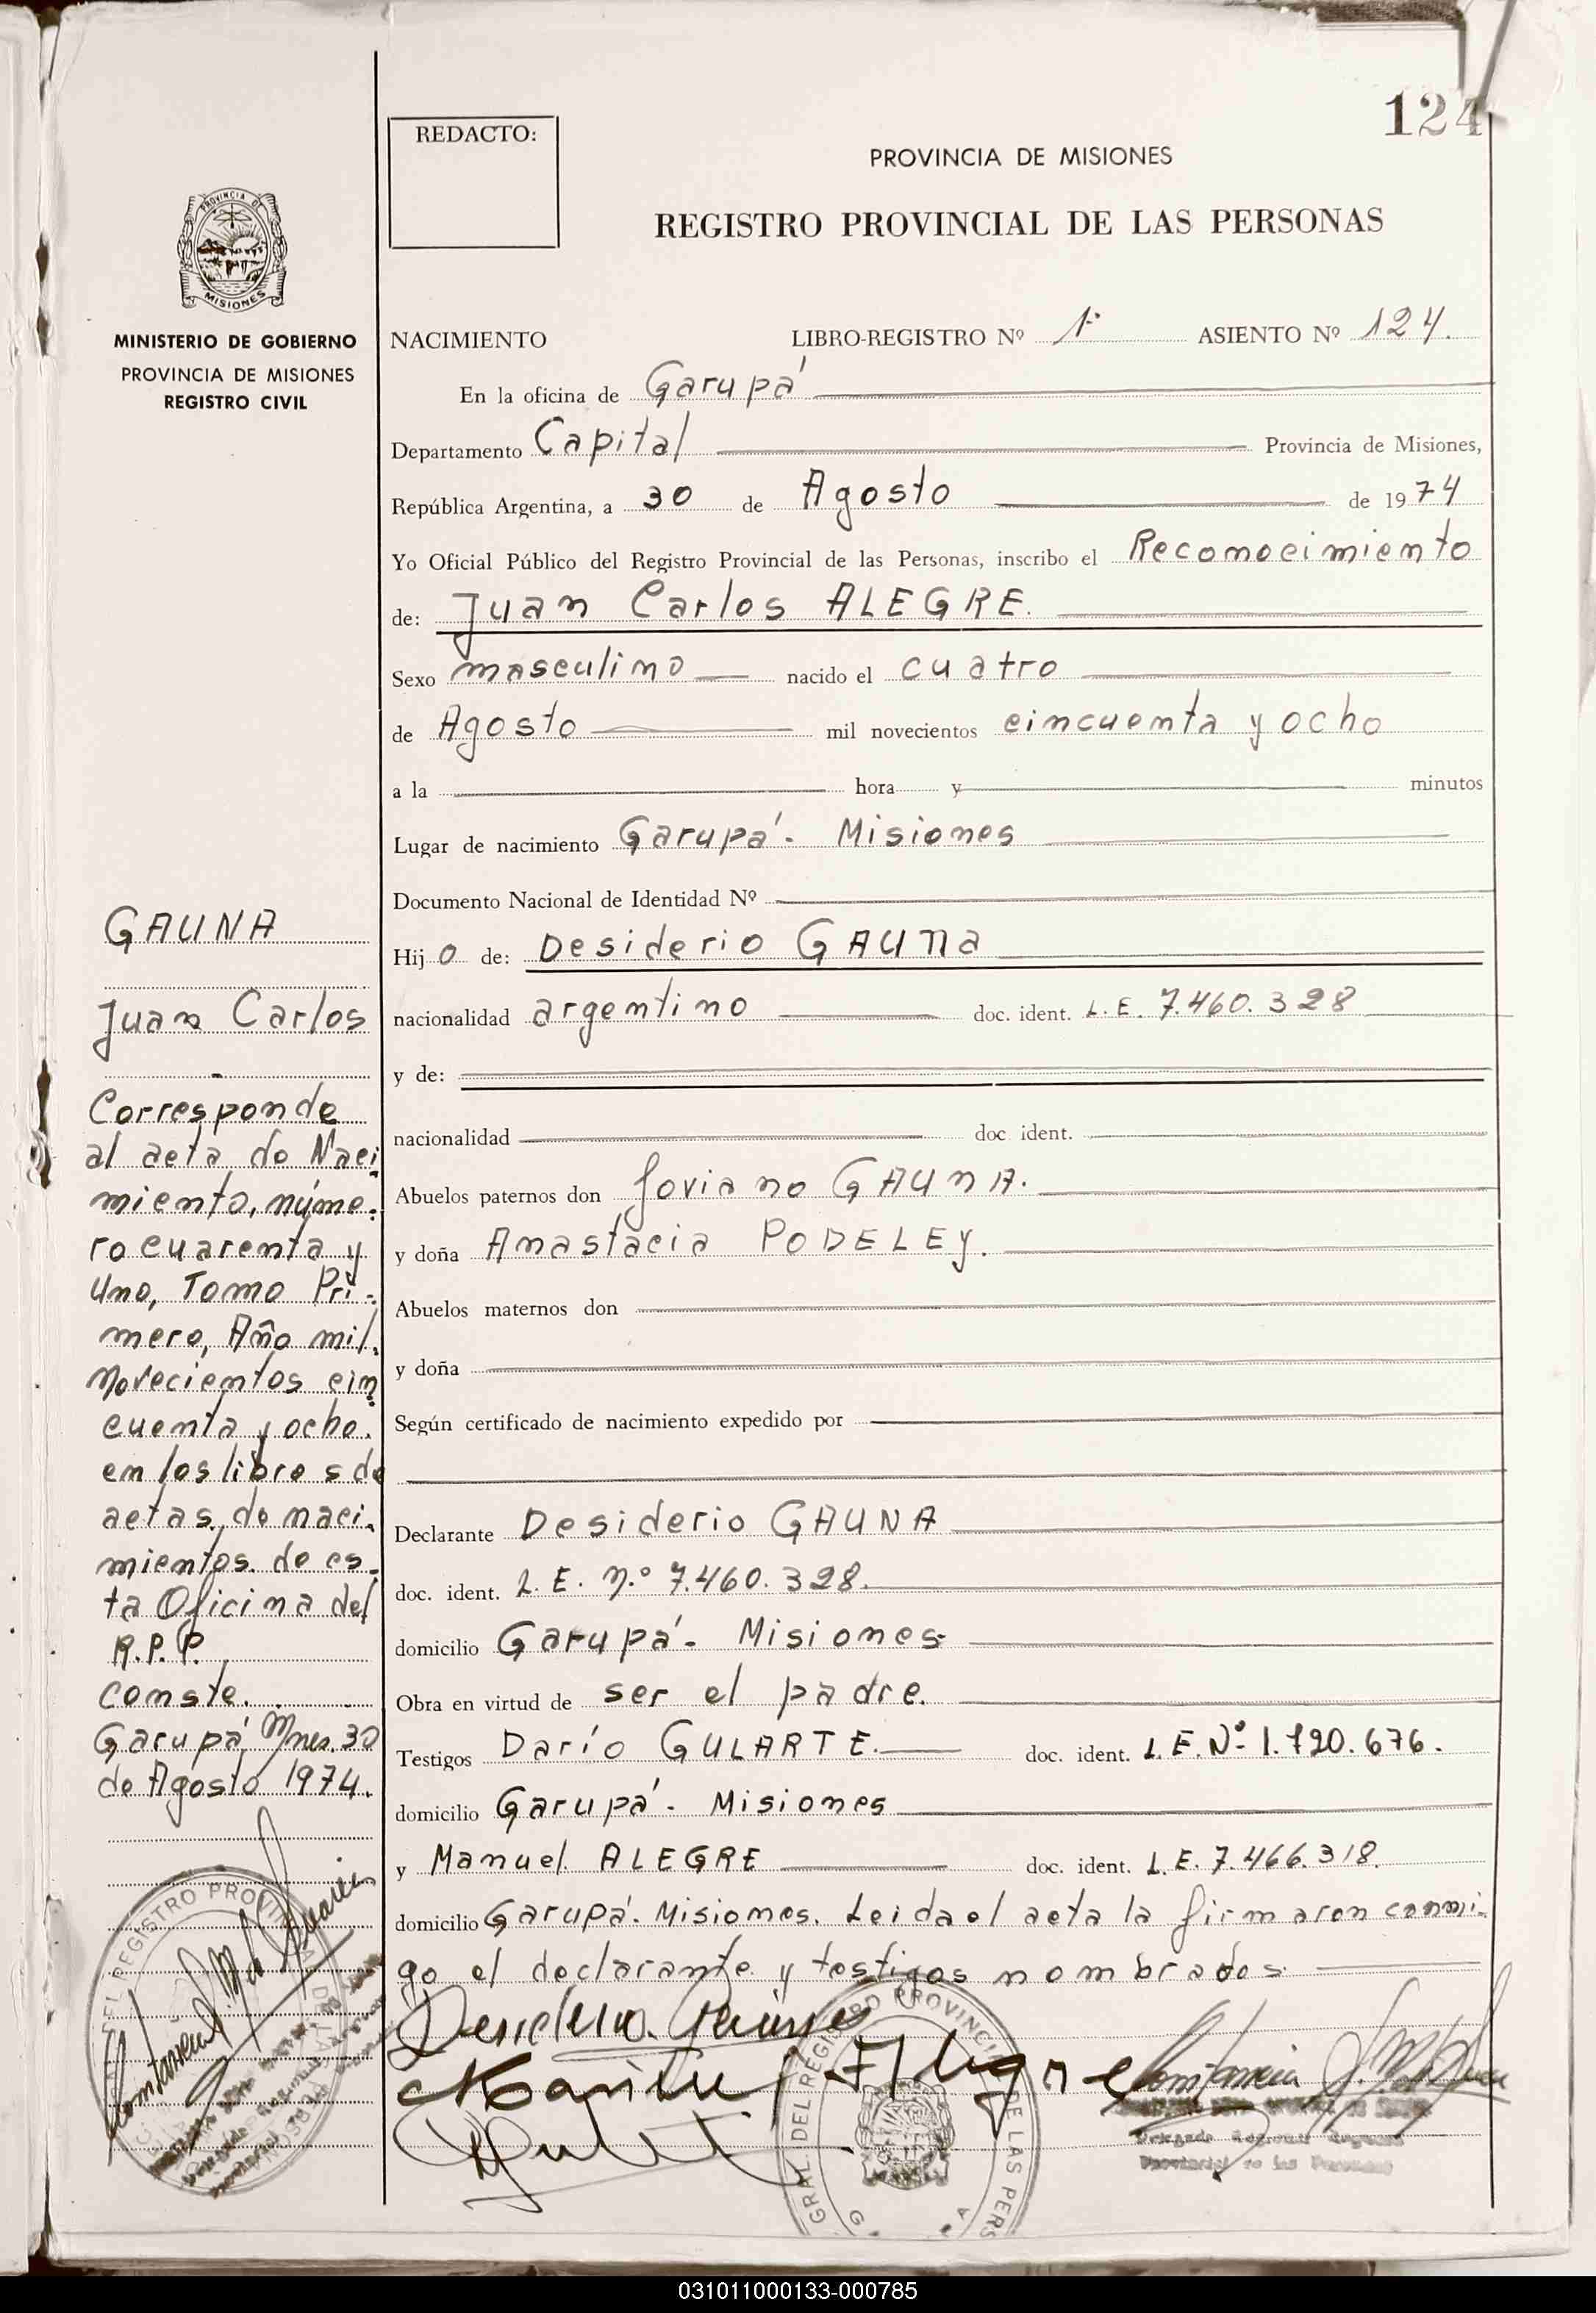 124
REDACTO:
PROVINCIA DE MISIONES
REGISTRO PROVINCIAL DE LAS PERSONAS
PROVINCIA DE
MISIONES
MINISTERIO DE GOBIERNO
PROVINCIA DE MISIONES
REGISTRO CIVIL
NACIMIENTO LIBRO-REGISTRO Nº 1º ASIENTO Nº 124.
En la oficina de Garupá
Departamento Capital Provincia de Misiones,
República Argentina, a 30 de Agosto de 1974
Yo Oficial Público del Registro Provincial de las Personas, inscribo el Reconocimiento
de: Juan Carlos ALEGRE.
Sexo masculino nacido el cuatro
de Agosto mil novecientos cincuenta y ocho
a la hora y minutos
Lugar de nacimiento Garupá - Misiones
Documento Nacional de Identidad Nº
Hijo de: Desiderio GAUNA
nacionalidad argentino doc. ident. L.E. 7.460.328
y de:
nacionalidad doc. ident.
Abuelos paternos don Joviano GAUNA.
y doña Anastacia PODELEY.
Abuelos maternos don
y doña
Según certificado de nacimiento expedido por
Declarante Desiderio GAUNA
doc. ident. L.E. n.º 7.460.328.
domicilio Garupá - Misiones
Obra en virtud de ser el padre.
Testigos Darío GULARTE. doc. ident. L.E. Nº 1.720.676.
domicilio Garupá - Misiones
y Manuel ALEGRE doc. ident. L.E. 7.466.318.
domicilio Garupá. Misiones. Leida el acta la firmaron conmi-
go el declarante y testigos nombrados
GAUNA
Juan Carlos
Corresponde
al acta de Naci
miento, núme-
ro cuarenta y
Uno, Tomo Pri-
mero, Año mil
novecientos cin
cuenta y ocho.
en los libros de
actas de naci-
mientos de es-
ta Oficina del
R.P.P.
conste.
Garupá Mnes. 30
de Agosto 1974.
Desiderio Gauna
Manuel Alegre
GRAL. DEL REGISTRO PROVINCIAL DE LAS PERS
031011000133-000785